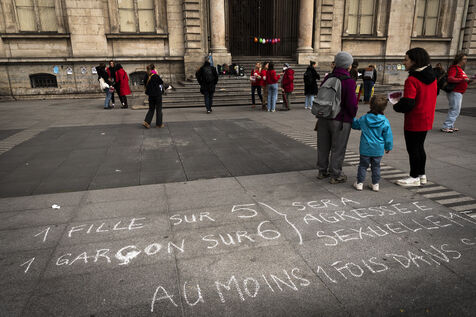 1 FILLE SUR 5 } SERA
1 GARÇON SUR 6 } AGRESSÉ.E
SEXUELLEMENT
AU MOINS 1 FOIS DANS S